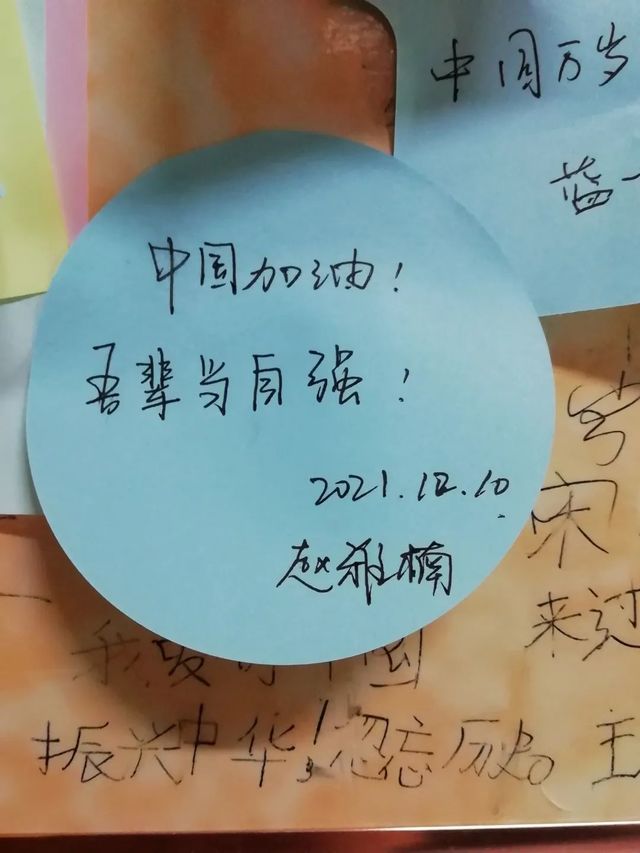 中国万岁
蓝一
中国加油!
吾辈当自强!
2021.12.10
赵雅楠
宋
来过
我爱 中国
振兴中华! 忘历史。主